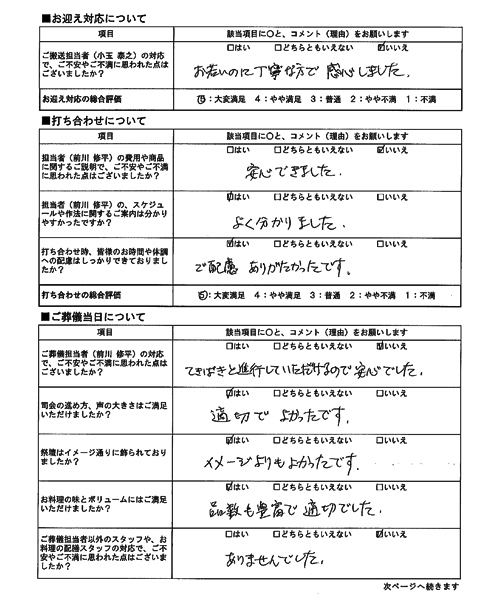 ■お迎え対応について
項目 該当項目に〇と、コメント（理由）をお願いします
ご搬送担当者（小玉 泰之）の対応
で、ご不安やご不満に思われた点は
ございましたか？
□はい □どちらともいえない ☑いいえ
お若いのに丁寧な方で 感心しました。
お迎え対応の総合評価 ⑤：大変満足 4：やや満足 3：普通 2：やや不満 1：不満
■打ち合わせについて
項目 該当項目に〇と、コメント（理由）をお願いします
担当者（前川 修平）の費用や商品
に関するご説明で、ご不安やご不満
に思われた点はございましたか？
□はい □どちらともいえない ☑いいえ
安心できました。
担当者（前川 修平）の、スケジュ
ールや作法に関するご案内は分かり
やすかったですか？
☑はい □どちらともいえない □いいえ
よく分かりました。
打ち合わせ時、皆様のお時間や体調
への配慮はしっかりできておりまし
たか？
☑はい □どちらともいえない □いいえ
ご配慮 ありがたかったです。
打ち合わせの総合評価 ⑤：大変満足 4：やや満足 3：普通 2：やや不満 1：不満
■ご葬儀当日について
項目 該当項目に〇と、コメント（理由）をお願いします
ご葬儀担当者（前川 修平）の対応
で、ご不安やご不満に思われた点は
ございましたか？
□はい □どちらともいえない ☑いいえ
てきぱきと進行していただけるので安心でした。
司会の進め方、声の大きさはご満足
いただけましたか？
☑はい □どちらともいえない □いいえ
適切で よかったです。
祭壇はイメージ通りに飾られており
ましたか？
☑はい □どちらともいえない □いいえ
イメージよりもよかったです。
お料理の味とボリュームにはご満足
いただけましたか？
☑はい □どちらともいえない □いいえ
品数も豊富で 適切でした。
ご葬儀担当者以外のスタッフや、お
料理の配膳スタッフの対応で、ご不
安やご不満に思われた点はございま
したか？
□はい □どちらともいえない ☑いいえ
ありませんでした。
次ページへ続きます